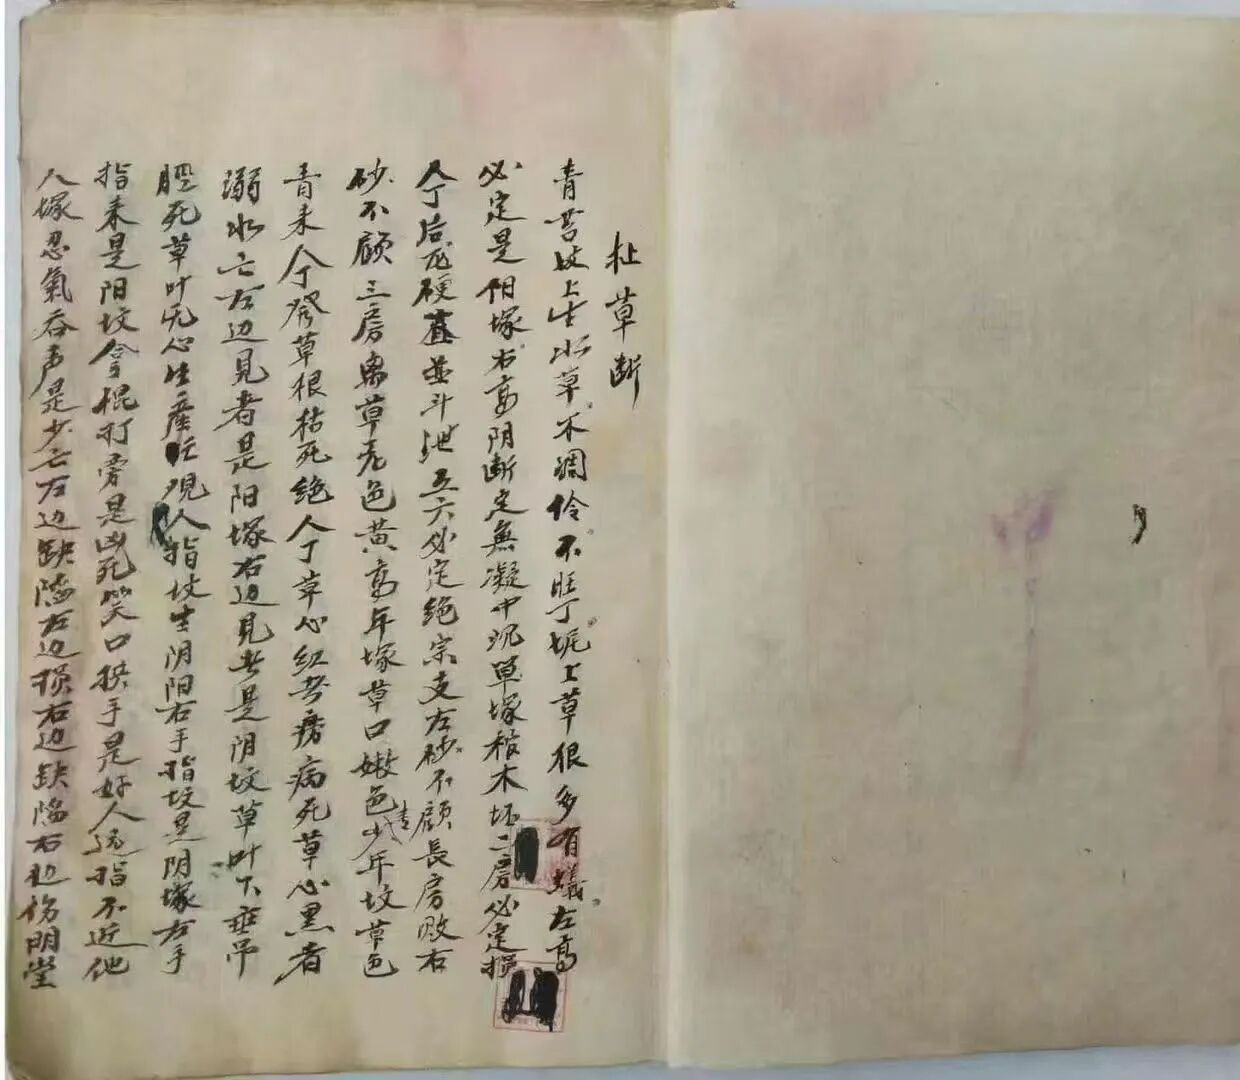 草断
青苔坟上生水草不调伶不旺丁坭上草根多有蚁左高
必定是阳塚右高阴断定無凝中沉草塚棺木坯二房必定损
人丁后龙硬直並斗泄五六必定绝宗支左砂不顾長房败右
砂不顾三房离草尨色黄高年塚草口嫩色少年坟草色
青
青来人丁発草根枯死绝人丁草心红者痨病死草心黑者
溺水亡左边見者是阳塚右边見者是阴坟草叶下垂吊
脛死草叶无心生產 观人指坟生阴阳右手指坟是阴塚左手
指来是阳坟拿棍打旁是凶死笑口拱手是好人远指不近他
人塚忍氣吞声是少亡左边缺陷左边损右边缺陷右边伤明堂